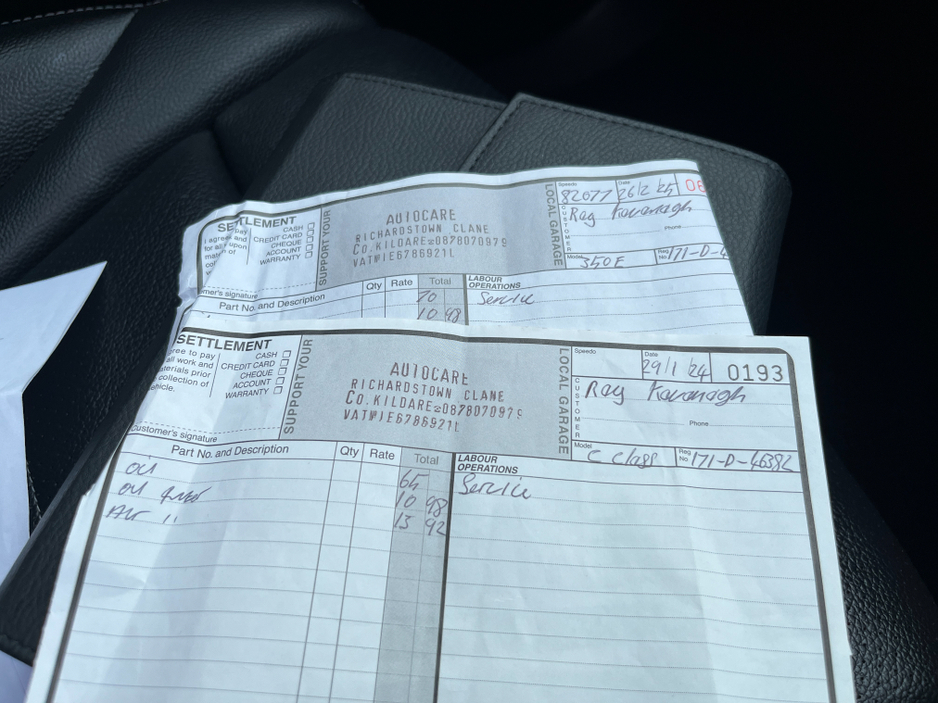 SETTLEMENT
I agree
and
for all
upon
of
CASH
CREDIT CARD
CHEQUE
ACCOUNT
WARRANTY
SUPPORT YOUR
AUTOCARE
RICHARDSTOWN CLANE
CO.KILDARE 0878070979
VAT№IE6786921L
LOCAL GARAGE
Speedo
82077
Date
26/2/25
CUSTOMER
Ray Kavanagh
Phone
Model
350E
Reg No.
171-D-4
mer's signature
Part No. and Description
Qty
Rate
Total
70
10 98
LABOUR
OPERATIONS
Service
SETTLEMENT
ree to pay
all work and
terials prior
collection of
hicle.
CASH
CREDIT CARD
CHEQUE
ACCOUNT
WARRANTY
Customer's signature
SUPPORT YOUR
AUTOCARE
RICHARDSTOWN CLANE
CO.KILDARE 0878070979
VAT№IE6786921L
LOCAL GARAGE
Speedo
Date
29/1/24
0193
CUSTOMER
Ray Kavanagh
Phone
Model
C Class
Reg No.
171-D-46392
Part No. and Description
Qty
Rate
Total
LABOUR
OPERATIONS
Oil
65
Service
Oil Filter
10 98
Air "
13 92